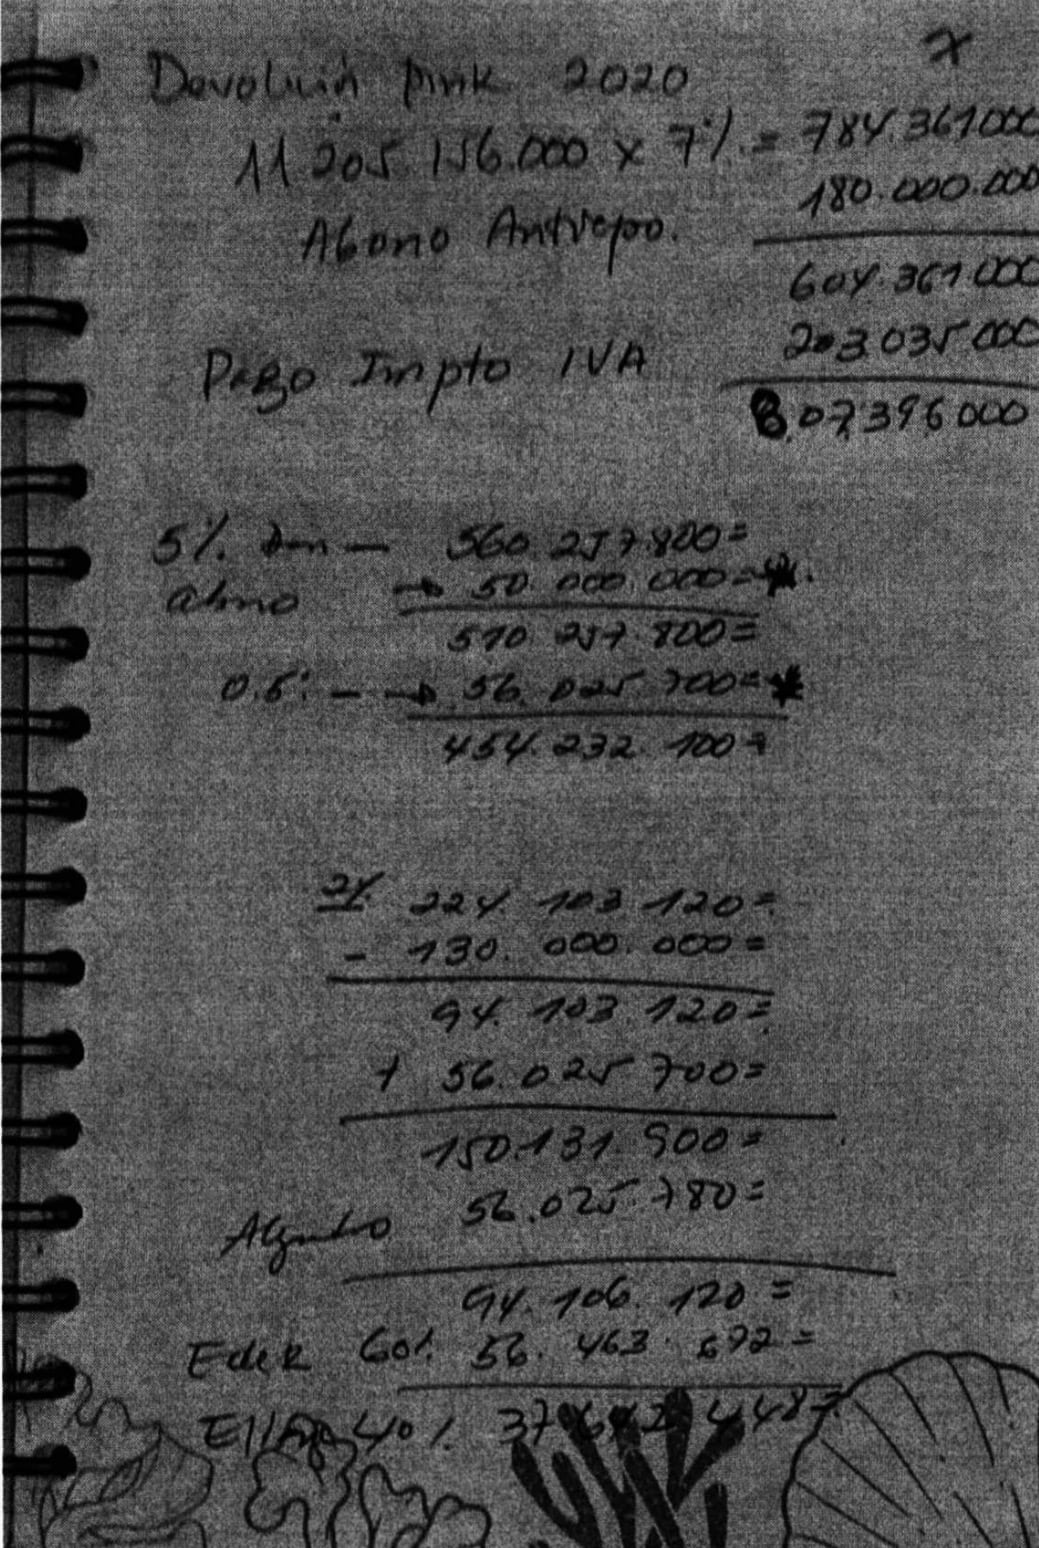 x
Devolución pink 2020
11.205.156.000 x 7% = 784.361000
180.000.000
Abono Anticipo.
604.361000
Pago Impto IVA 203.035.000
8,07,396.000
5% 560.257.800=
abono → 50.000.000=
510.257.800=
0.5% - - → 56.025.700=
454.232.100=
2% 224.103.120=
- 130.000.000=
94.103.120=
+ 56.025.700=
150.131.900=
56.025.780=
94.106.120=
Eder 60% 56.463.672=
40% 37